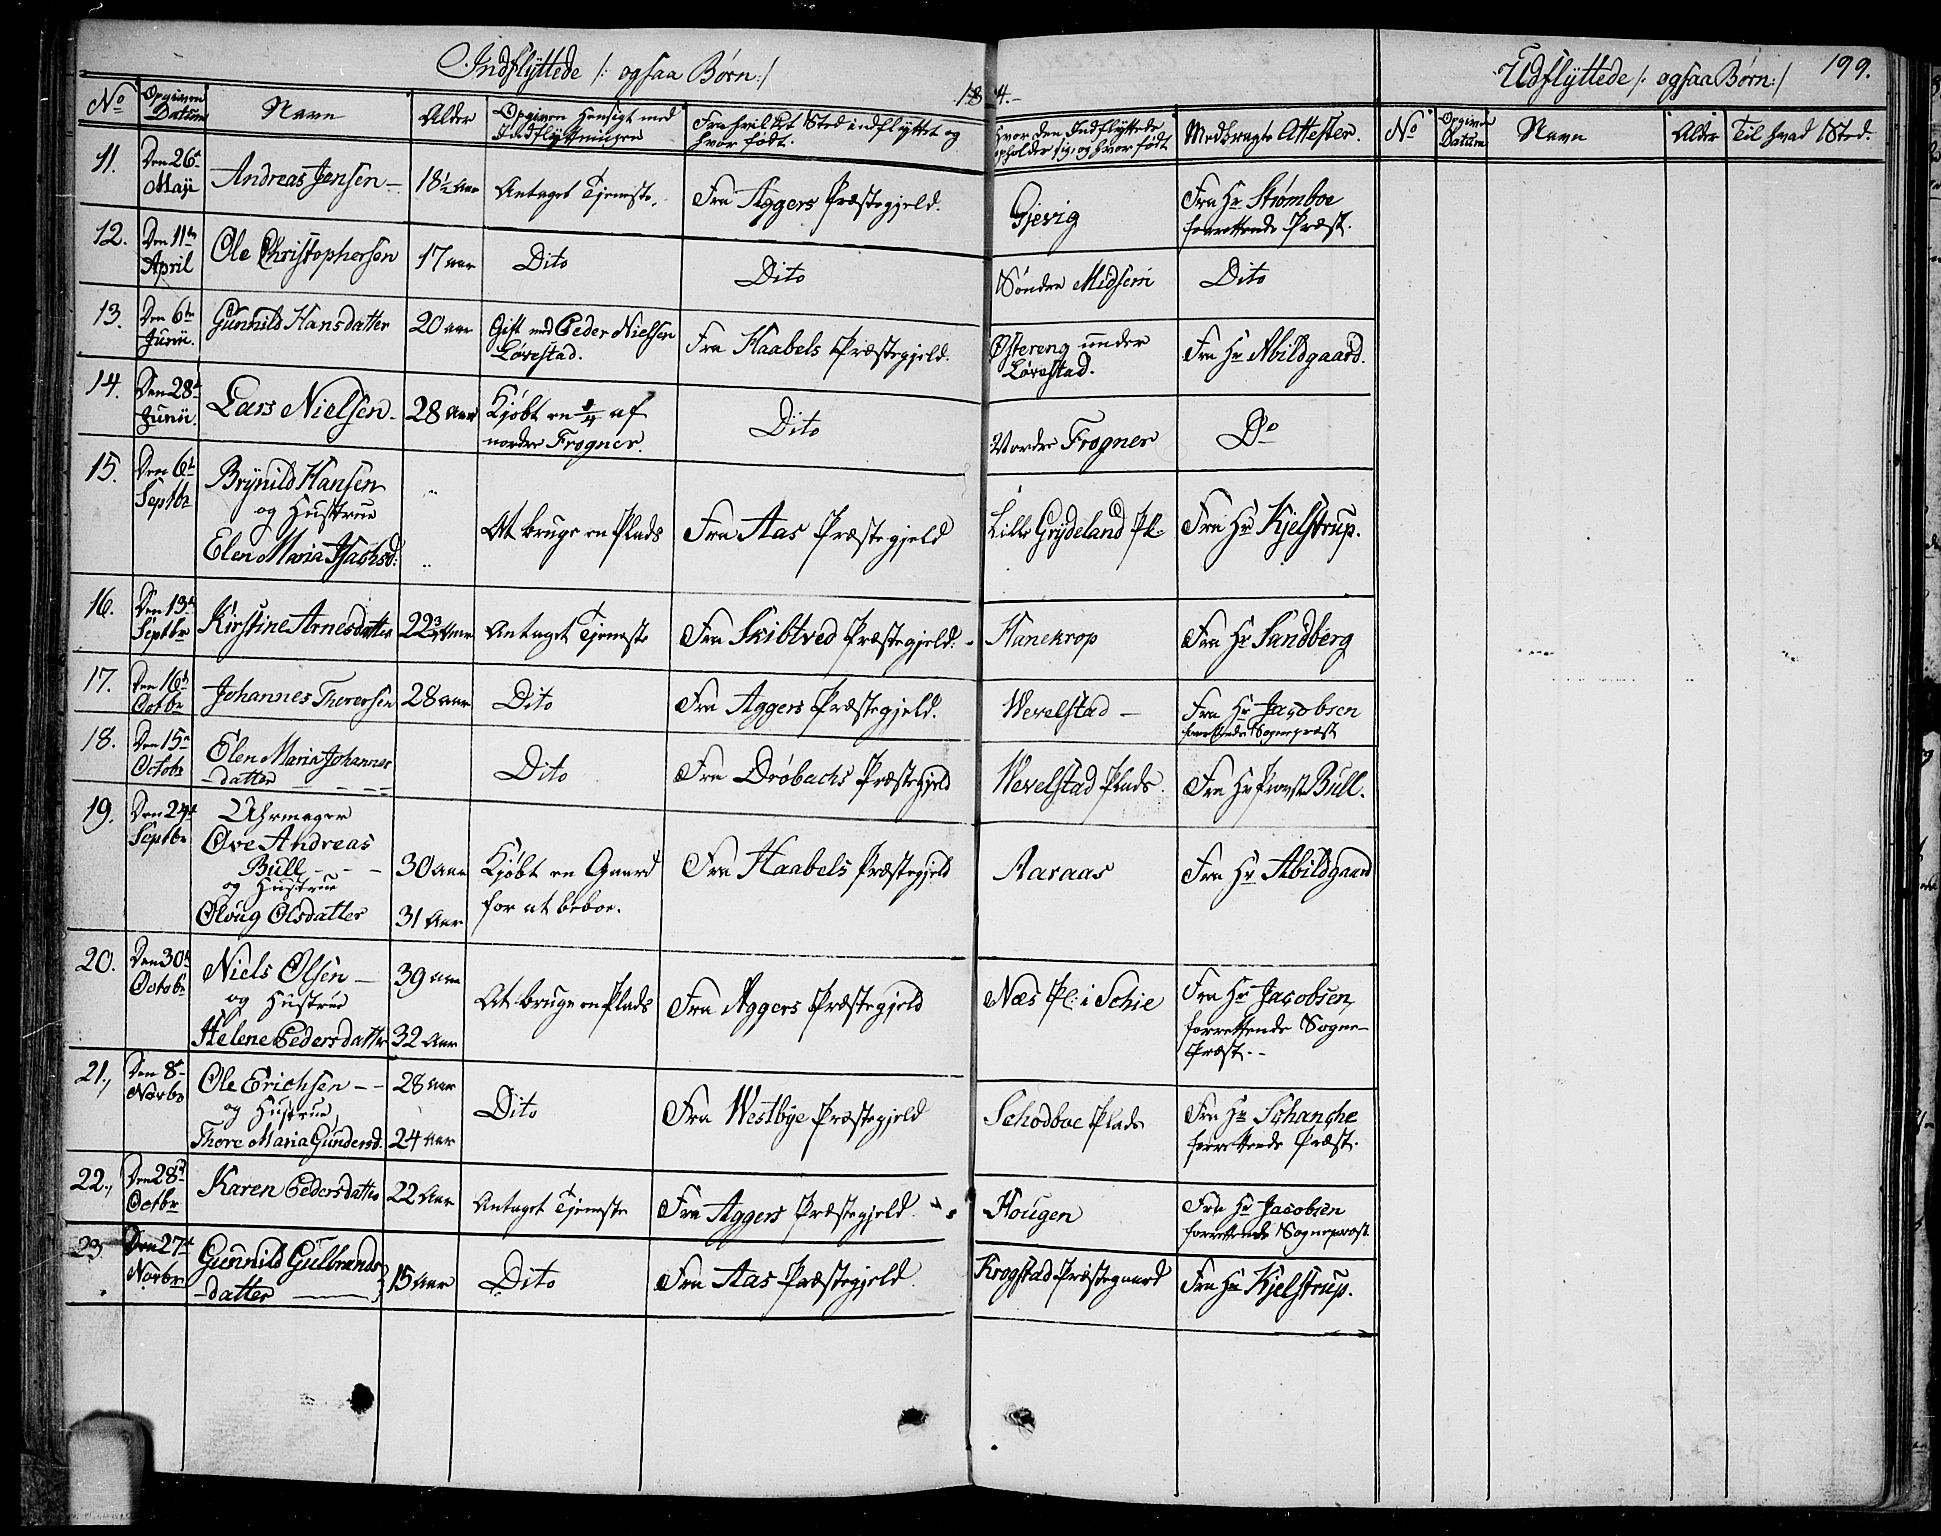 Indflyttede /: ogsaa Børn :/
Udflyttede /: ogsaa Børn :/ 199.
No Opgiven Datum Navn Alder Opgiven Hensigt med Indflytningen Fra hvilket Sted indflyttet og hvor født. Hvor den Indflyttede opholder sig, og hvor født Medbragte Attester. No Opgiven Datum Navn Alder Til hvad Sted.
11. Den 26de Maji Andreas Jensen 18½ Aar Antaget Tjeneste. Fra Aggers Præstegjeld. Gjevig Fra Hr Strømboe forrettende Præst.
12. Den 11te April Ole Christophersen 17 aar Dito Dito Søndre Midsem Dito
13. Den 6te Junii. Gunnild Hansdatter 20 aar Gift med Peder Nielsen Løvestad. Fra Haabels Præstegjeld. Østereng under Løvestad. Fra Hr Abildgaard.
14. Den 28de Junii. Lars Nielsen 28 Aar Kjøbt en ¼ af nordre Frogner. Dito Nordre Frogner Do
15. Den 6te Septbr Brynild Hansen og Hustrue Elen Maria Isachsd: At bruge en Plads Fra Aas Præstegjeld Lille Grydeland Pl: Fra Hr Kjelstrup.
16. Den 13de Septbr Kirstine Arnesdatter 22¾ Aar Antaget Tjeneste Fra Skibtved Præstegjeld. Hanekrop Fra Hr Sandberg
17. Den 16de Octbr Johannes Thoresen 28 aar Dito Fra Aggers Præstegjeld. Wevelstad Fra Hr Jacobsen forrettende Sognepræst
18. Den 15de Octobr Elen Maria Johannesdatter Dito Fra Drøbachs Præstegjeld Wevelstad Plads. Fra Hr Provst Bull.
19. Den 24de Septbr Uhrmager Ove Andreas Bull 30 aar og Hustrue Oloug Olsdatter 31 Aar Kjøbt en Gaard for at beboe. Fra Haabels Præstegjeld Aaraas Fra Hr Abildgaard
20. Den 30te Octobr Niels Olsen 39 aar og Hustrue Helene Pedersdatter 32 Aar At bruge en Plads Fra Aggers Præstegjeld Næs Pl: i Schie Fra Hr Jacobsen, forrettende Sogne-Præst.
21. Den 8de Novbr Ole Erichsen 28 aar og Hustrue Thore Maria Gundersd. 24 aar Dito Fra Westbye Præstegjeld Schodboe Plads Fra Hr Schanche forrettende Præst.
22. Den 28de Octbr Karen Pedersdatter 22 Aar Antaget Tjeneste Fra Aggers Præstegjeld. Hougen Fra Hr Jacobsen forrettende Sognepræst.
23. Den 27de Novbr Gunnild Gulbrandsdatter 15 Aar Dito Fra Aas Præstegjeld. Krogstad Præstegaard Fra Hr Kjelstrup.